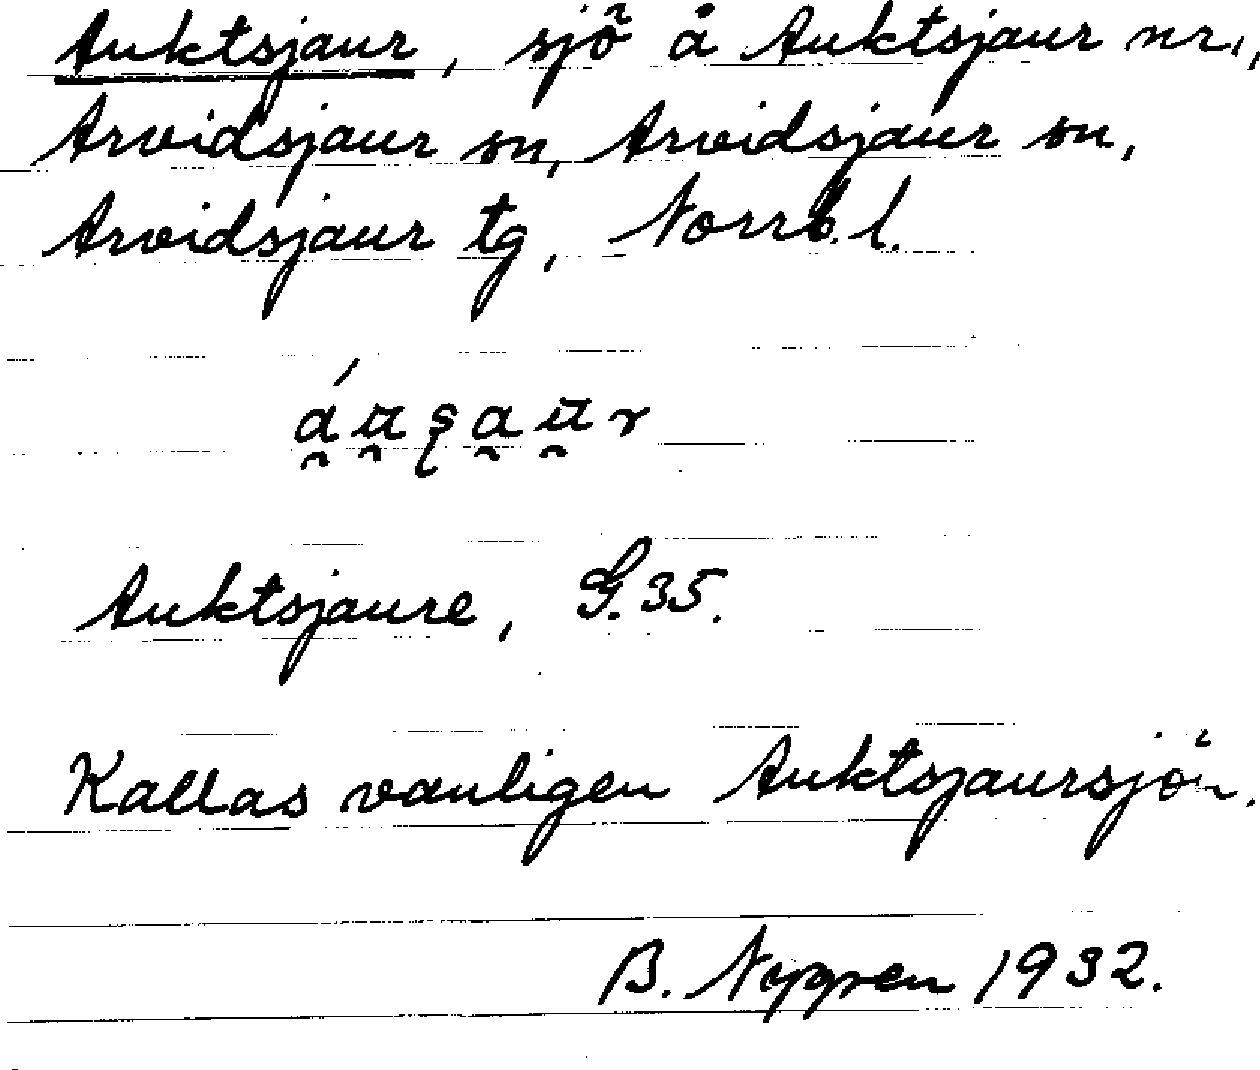 Auktsjaur, sjö å Auktsjaur nr.,
Arvidsjaur sn, Arvidsjaur sn,
Arvidsjaur tg, Norrb. l.
Auktsjaure, G. 35.
Kallas vanligen Auktsjaursjön.
B. Nygren 1932.